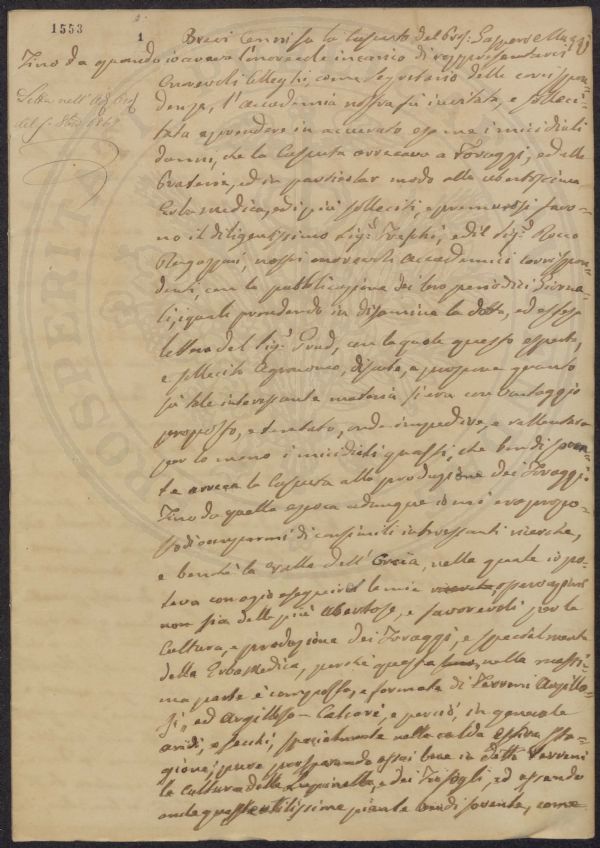 1553
1
Brevi Cenni su la Cuscuta del Prof. Gaspero Mazzi
Fino da quando io aveva l'onorevole incarico di rappresentarvi
Onorevoli Colleghi, come Segretario delle corrispon=
denze, l'accademia nostra fù invitata, e solleci=
tata a prendere in accurato esame i micidiali
danni, che la Cuscuta arrecava a Foraggi, ed alle
Praterie, ed in particolar modo alla ubertosissima
Erba medica, ed i più solleciti, e premurosi furo=
no il diligentissimo Sig.r e dil Sig.r Rocco
Ragazzoni, nostri onorevoli accademici corrispon=
denti, con la pubblicazione dei loro periodici Giorna=
li, i quali prendendo in disamina la dotta, ed estesa
lettera del Sig.r con la quale questo esperto,
e sollecito Agronomo, discute, e propone quanto
su tale interessante materia si era con vantaggio
proposto, e tentato, onde impedire, e rallentare
per lo meno i micidiali guasti, che bene spesso
arreca la Cuscuta alla produzione dei Foraggi
Fino da quella epoca adunque io m'era propo=
sto di occuparmi di consimili interessanti ricerche,
e benche la Valle dell'Orcia, nella quale io po=
teva con agio eseguire le mie osservazioni
non sia delle più ubertose, e favorevoli per la
Cultura, e produzione dei Foraggi, e specialmente
della Erba Medica, perche questa nella massi=
ma parte è composta, e formata di Terreni Argillo=
si, ed Argilloso-Calcari, e perciò, in generale
aridi, e secchi, specialmente nella calda estiva sta=
gione; pure prosperando assai bene in detti terreni
la Cultura della Lupinella, e dei Trifogli, ed essendo
anche queste utilissime piante bene di sovente, come
Letta nell'Ad.
del